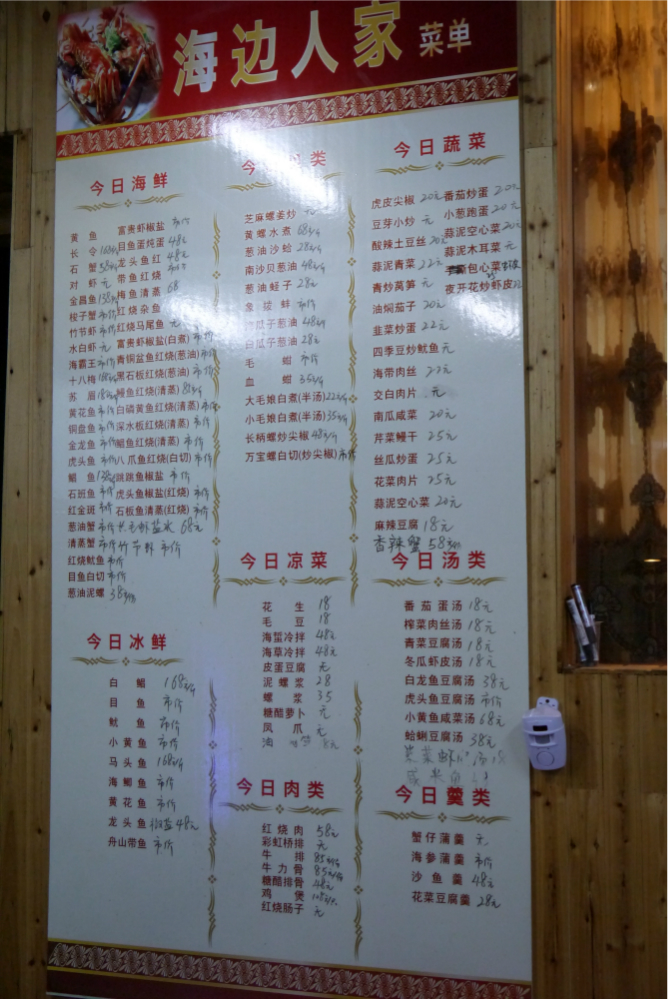 海边人家 菜单
今日海鲜
黄鱼 富贵虾椒盐 市价
长令 168/斤 目鱼蛋炖蛋 48元
石蟹 58/斤 龙头鱼红 48元
对虾 元 带鱼红烧
金昌鱼 138/斤 梅鱼清蒸 68
梭子蟹 市价 红烧杂鱼
竹节虾 市价 红烧马尾鱼 元
水白虾 元 富贵虾椒盐(白煮) 市价
海霸王 市价 青铜盆鱼红烧(葱油) 市价
十八梅 168/斤 黑石板红烧(葱油) 市价
苏眉 鳗鱼红烧(清蒸) 88/斤
黄花鱼 市价 白磷黄鱼红烧(清蒸) 市价
铜盘鱼 市价 深水板红烧(清蒸) 市价
金龙鱼 市价 鲳鱼红烧(清蒸) 市价
虎头鱼 市价 八爪鱼红烧(白切) 市价
鲳鱼 跳跳鱼椒盐 市价
石班鱼 市价 虎头鱼椒盐(红烧) 市价
红金斑 市价 石板鱼清蒸(红烧) 市价
葱油蟹 市价 68元
清蒸蟹 市价 竹节虾 市价
红烧鱿鱼 市价
目鱼白切 市价
葱油泥螺 38/斤
今日冰鲜
白鲳 168/斤
目鱼 市价
鱿鱼 市价
小黄鱼 市价
马头鱼 168/斤
海鲫鱼 市价
黄花鱼 市价
龙头鱼 椒盐 48元
舟山带鱼 市价
类
芝麻螺姜炒 元
黄螺水煮 68/斤
葱油沙蛤 28/斤
南沙贝葱油 48/斤
葱油蛏子 28元
象拔蚌 市价
瓜子葱油 48/斤
白瓜子葱油 28元
毛蚶 市价
血蚶 35/斤
大毛娘白煮(半汤) 22/斤
小毛娘白煮(半汤) 35/斤
长柄螺炒尖椒 48/斤
万宝螺白切(炒尖椒) 市价
今日凉菜
花生 18
毛豆 18
海蜇冷拌 48元
海草冷拌 48元
皮蛋豆腐 元
泥螺浆 28
螺浆 35
糖醋萝卜 元
凤爪 元
油 8元
今日肉类
红烧肉 58元
彩虹桥排 元
牛排 85
牛力骨 85
糖醋排骨 48元
鸡煲
红烧肠子 元
今日蔬菜
虎皮尖椒 20元 番茄炒蛋 20元
豆芽小炒 元 小葱跑蛋 20元
酸辣土豆丝 20元 蒜泥空心菜 20元
蒜泥青菜 22元 蒜泥木耳菜 元
青炒莴笋 元 包心菜
油焖茄子 20元 夜开花炒虾皮 22
韭菜炒蛋 22元
四季豆炒鱿鱼 元
海带肉丝 22元
交白肉片 元
南瓜咸菜 20元
芹菜鳗干 25元
丝瓜炒蛋 25元
花菜肉片 25元
蒜泥空心菜 20元
麻辣豆腐 18元
香辣蟹 58元/斤
今日汤类
番茄蛋汤 18元
榨菜肉丝汤 18元
青菜豆腐汤 18元
冬瓜虾皮汤 18元
白龙鱼豆腐汤 38元
虎头鱼豆腐汤 市价
小黄鱼咸菜汤 68元
蛤蜊豆腐汤 38元
今日羹类
蟹仔蒲羹 元
海参蒲羹 市价
沙鱼羹 48元
花菜豆腐羹 28元